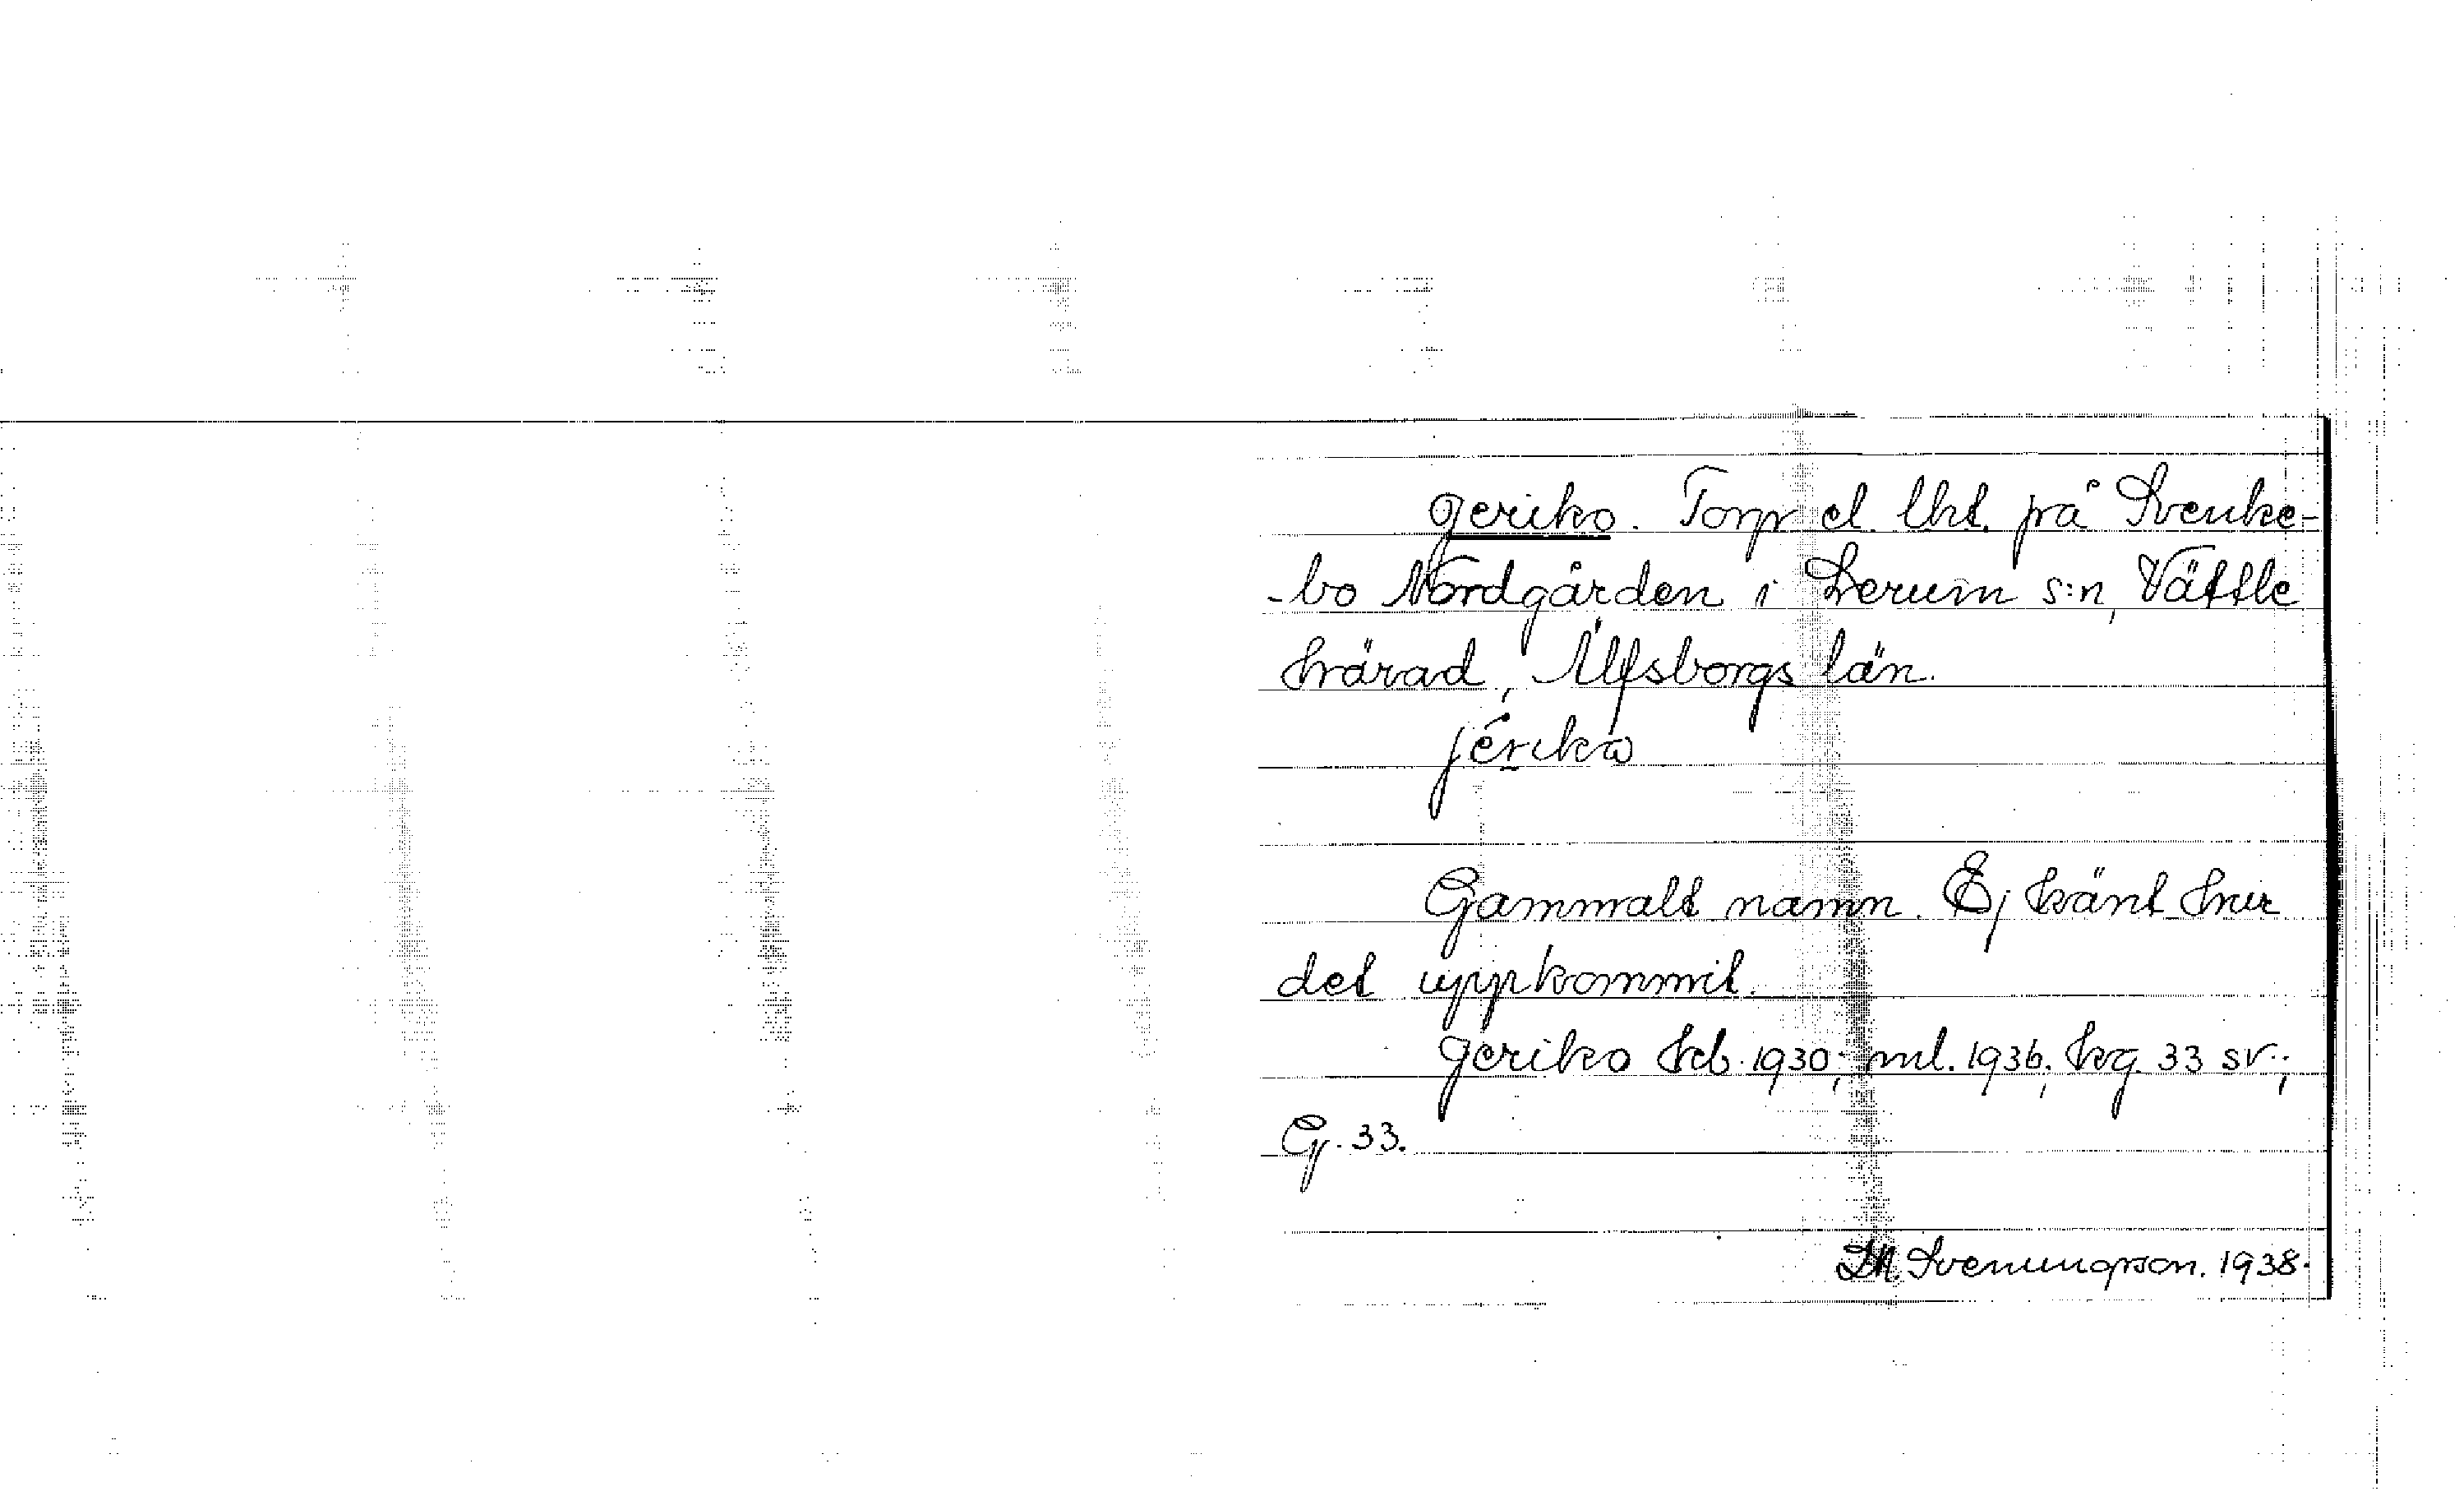 Jeriko. Torp el. lht. på Svenke-
-bo Nordgården i Lerum s:n, Vättle
härad, Älfsborgs län.
jériko
Gammalt namn. Ej känt hur
det uppkommit.
Jeriko kb. 1930; ml. 1936; hg. 33 sv.;
G. 33.
Svenungsson. 1938.